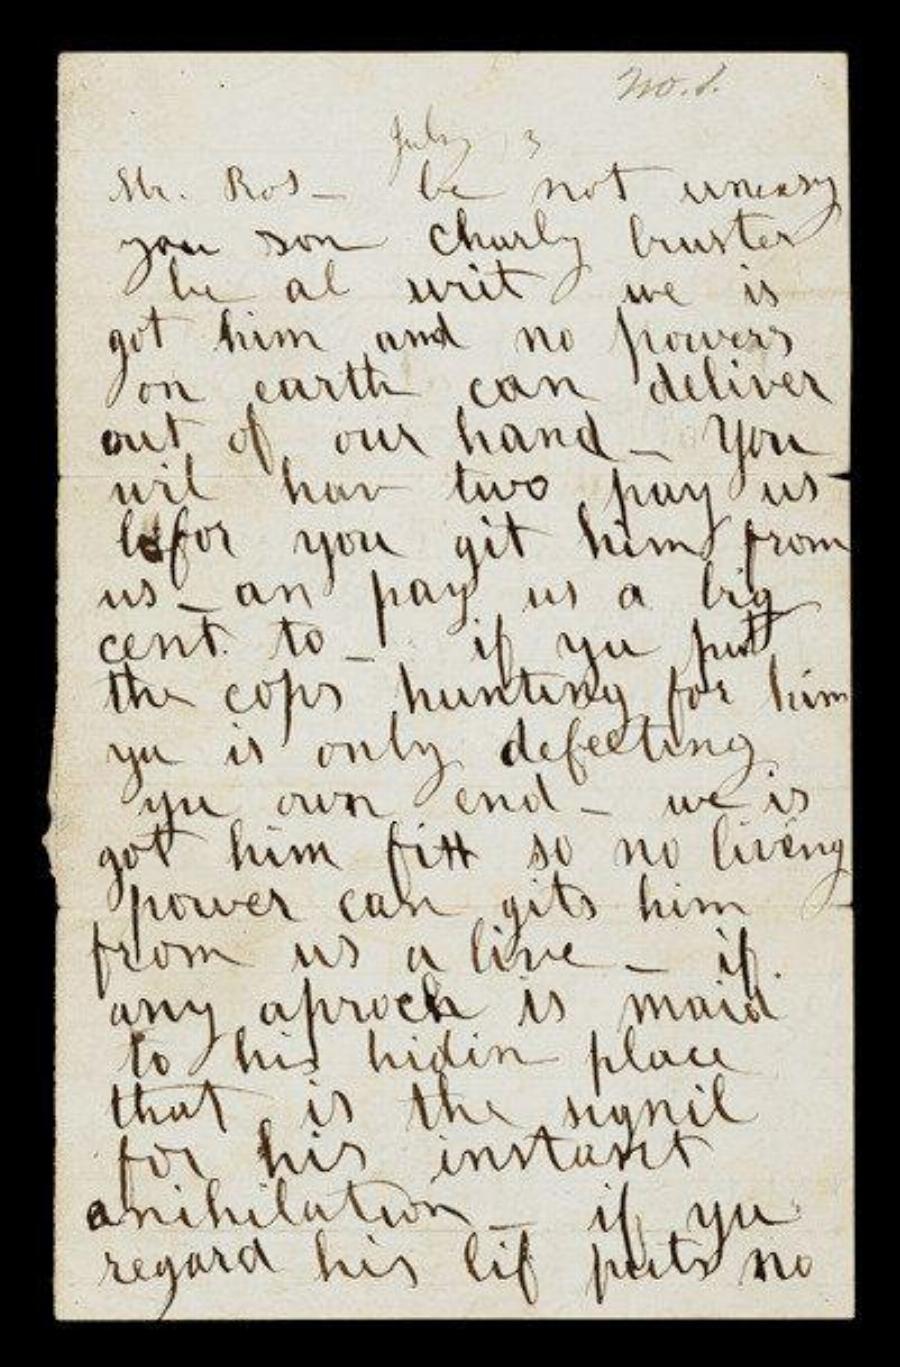 No. 1.
July 3
Mr. Ros_ be not uneasy
you son charly bruster
be al writ we is
got him and no powers
on earth can deliver
out of our hand_ You
wil hav two pay us
befor you git him from
us_ an pay us a big
cent to_ if yu put
the cops hunting for him
yu is only defeeting
yu own end_ we is
got him fitt so no living
power can gits him
from us a live_ if
any aproch is maid
to his hidin place
that is the signil
for his instant
anihilation_ if yu
regard his lif puts no